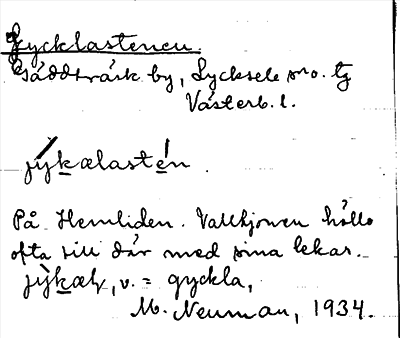 Gycklastenen.
Gäddträsk by, Lycksele sn o. tg
Västerb. l.
jýkælastén.
På Hemliden. Vallhjonen hölls
ofta till där med sina lekar.
jykæl, v. = gyckla,
M. Neuman, 1934.